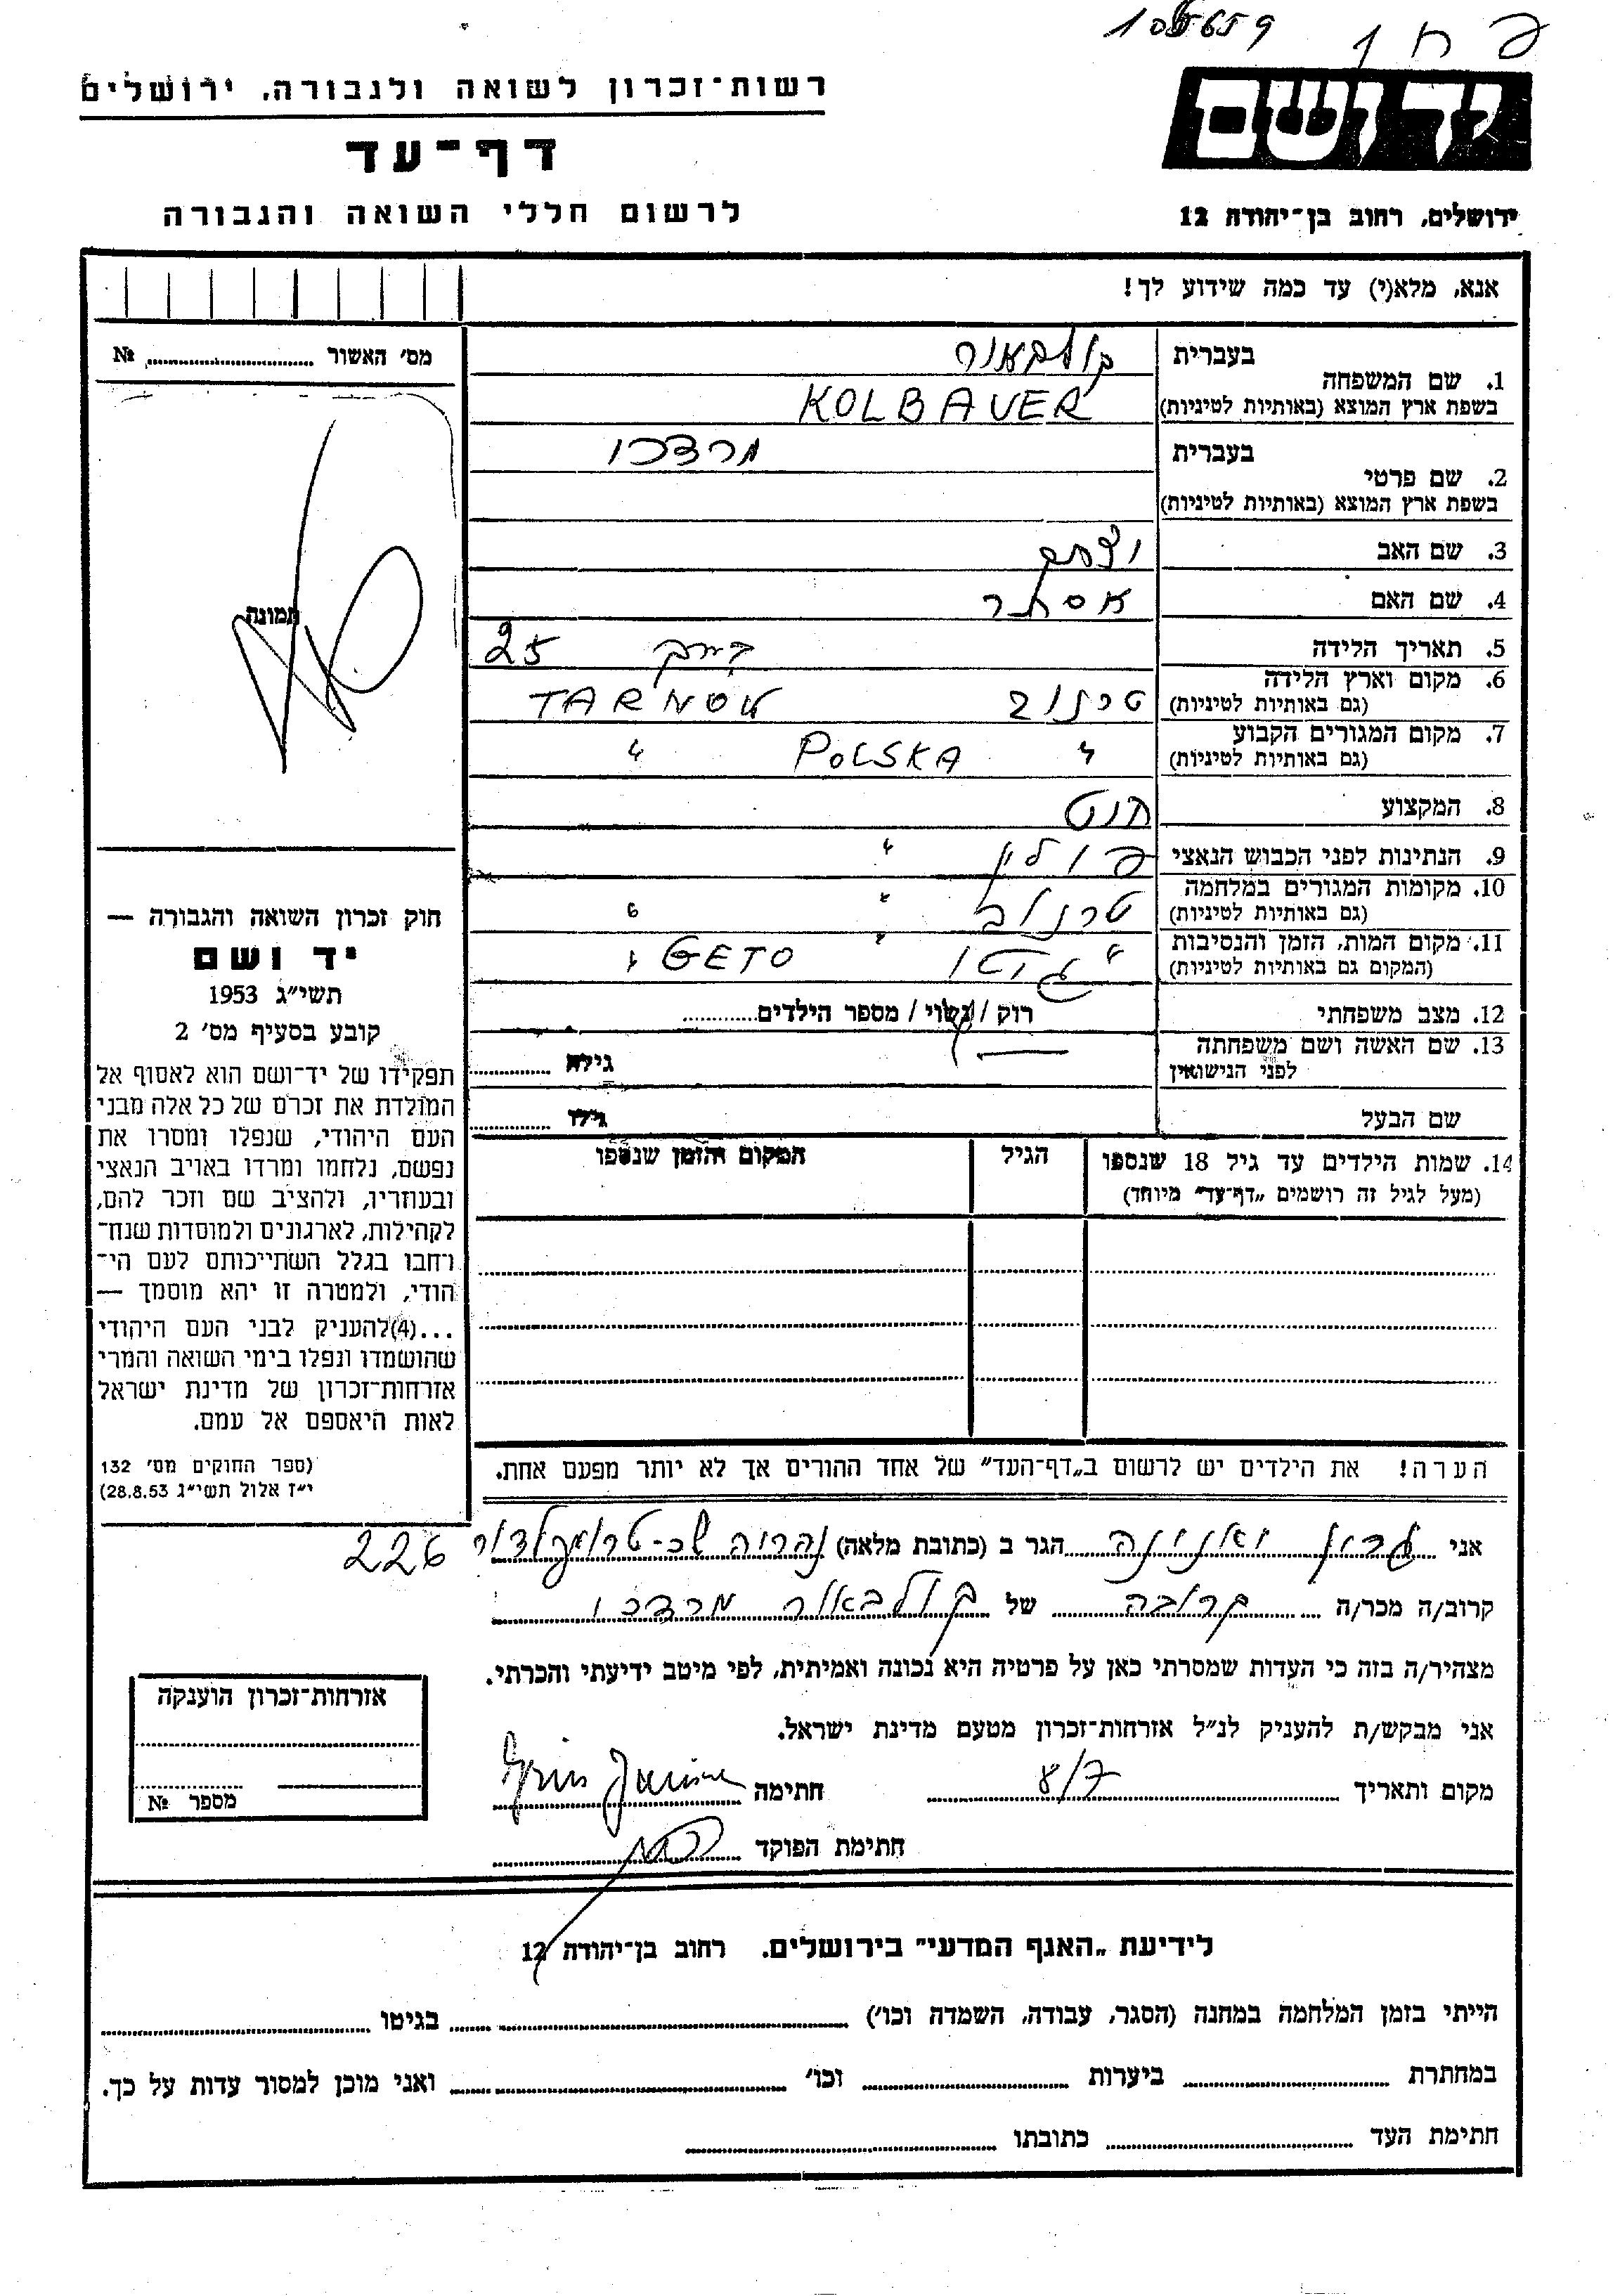 105659
פחו
רשות־זכרון לשואה ולגבורה, ירושלים
דף־עד
לרשום חללי השואה והגבורה
יד ושם
ירושלים, רחוב בן־יהודה 12
אנא, מלא(י) עד כמה שידוע לך!
מס' האשור № 
1. שם המשפחה בעברית
בשפת ארץ המוצא (באותיות לטיניות) KOLBAUER
2. שם פרטי בעברית מרדכי
בשפת ארץ המוצא (באותיות לטיניות)
3. שם האב יצחק
4. שם האם אסתר
5. תאריך הלידה 25
6. מקום וארץ הלידה
(גם באותיות לטיניות) טרנוב TARNOW
7. מקום המגורים הקבוע
(גם באותיות לטיניות) " POLSKA "
8. המקצוע
9. הנתינות לפני הכבוש הנאצי פולין "
10. מקומות המגורים במלחמה
(גם באותיות לטיניות) טרנוב " "
11. מקום המות, הזמן והנסיבות
(המקום גם באותיות לטיניות) " גיטו " GETO "
12. מצב משפחתי רוק / נשוי / מספר הילדים
13. שם האשה ושם משפחתה
לפני הנישואין גילה
שם הבעל גילו
14. שמות הילדים עד גיל 18 שנספו
(מעל לגיל זה רושמים „דף־עד" מיוחד)
הגיל
המקום והזמן שנספו
תמונה
חוק זכרון השואה והגבורה —
יד ושם
תשי"ג 1953
קובע בסעיף מס' 2
תפקידו של יד־ושם הוא לאסוף אל
המולדת את זכרם של כל אלה מבני
העם היהודי, שנפלו ומסרו את
נפשם, נלחמו ומרדו באויב הנאצי
ובעוזריו, ולהציב שם וזכר להם,
לקהילות, לארגונים ולמוסדות שנח־
רבו בגלל השתייכותם לעם הי־
הודי, ולמטרה זו יהא מוסמך —
...(4)להעניק לבני העם היהודי
שהושמדו ונפלו בימי השואה והמרי
אזרחות־זכרון של מדינת ישראל
לאות היאספם אל עמם.
(ספר החוקים מס' 132
י"ז אלול תשי"ג 28.8.53)
הערה! את הילדים יש לרשום ב„דף־העד" של אחד ההורים אך לא יותר מפעם אחת.
אני הגר ב (כתובת מלאה) נהריה שכ- טרומפלדור 226
קרוב/ה מכר/ה קרובה של קולבאור מרדכי
מצהיר/ה בזה כי העדות שמסרתי כאן על פרטיה היא נכונה ואמיתית, לפי מיטב ידיעתי והכרתי.
אני מבקש/ת להעניק לנ"ל אזרחות־זכרון מטעם מדינת ישראל.
מקום ותאריך 8/7 חתימה
חתימת הפוקד
אזרחות־זכרון הוענקה
מספר №
לידיעת „האגף המדעי" בירושלים. רחוב בן־יהודה 12
הייתי בזמן המלחמה במחנה (הסגר, עבודה, השמדה וכו') בגיטו
במחתרת ביערות וכו' ואני מוכן למסור עדות על כך.
חתימת העד כתובתו